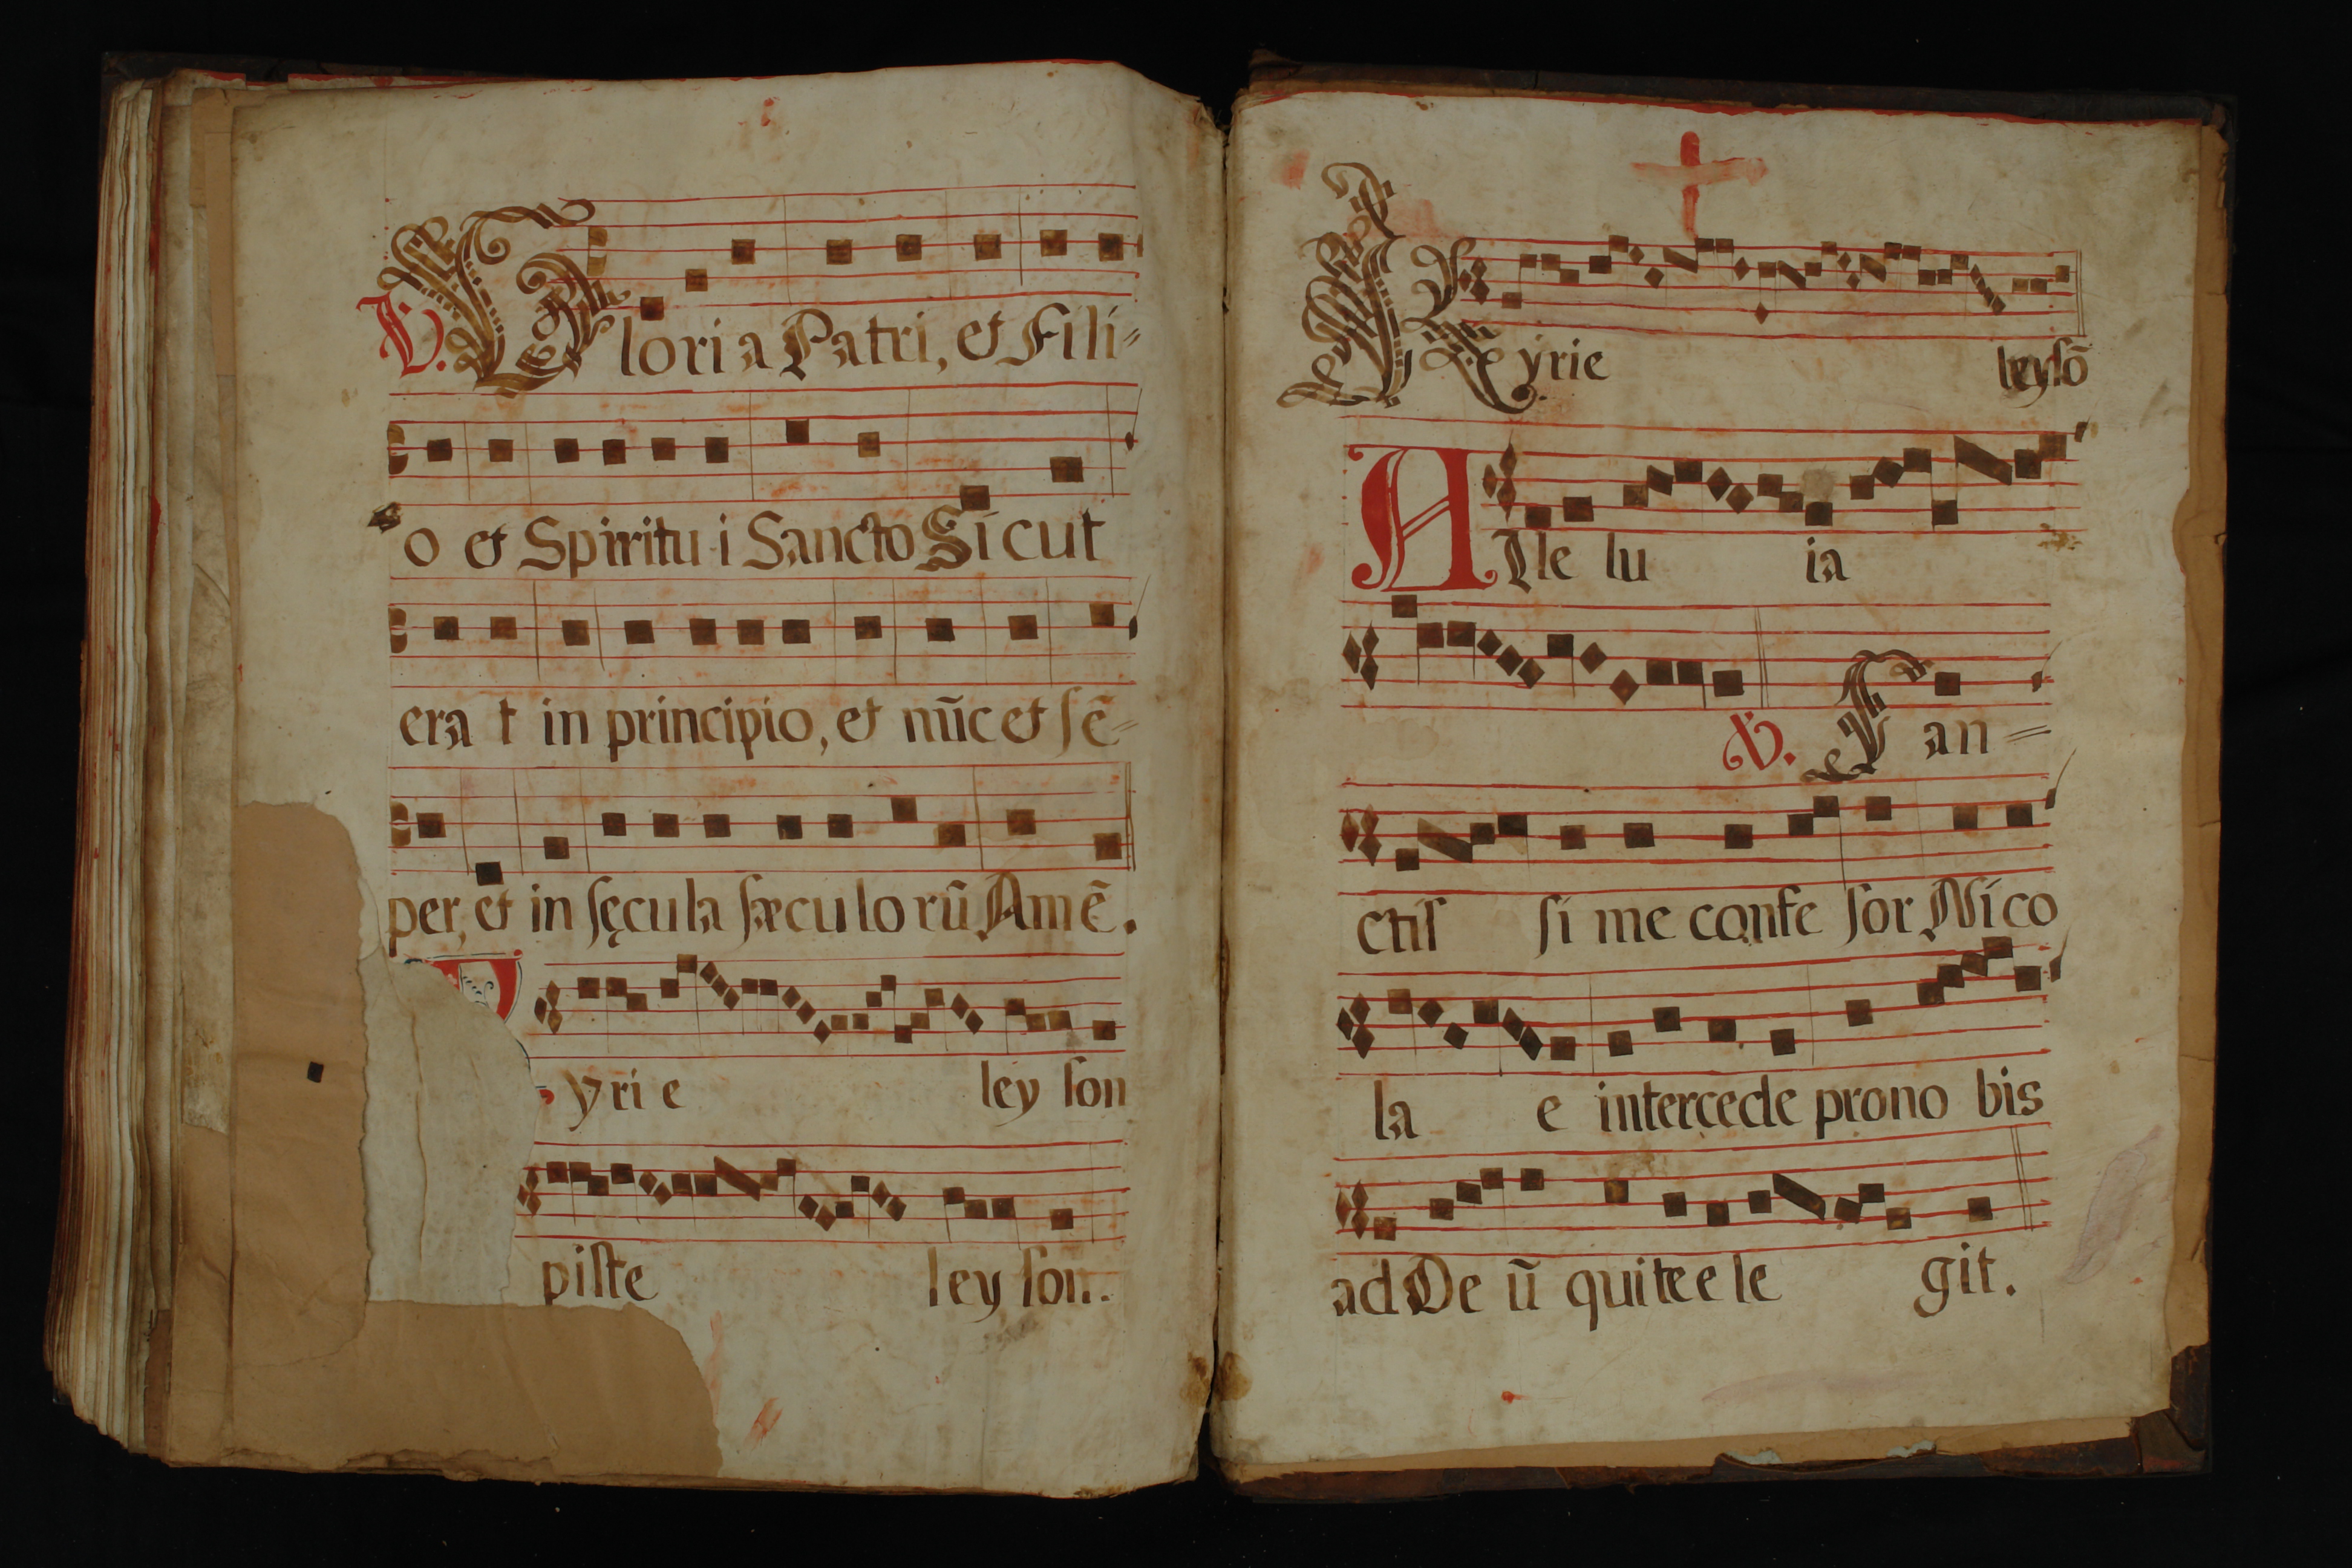 V. Gloria Patri, et Fili-
o et Spiritu i Sancto Sicut
era t in principio, et nūc et ſē-
per, et in ſęcula ſæculo rū Amē.
yri e ley ſon
piſte ley ſon.
Kyrie leyſō
Alle lu ia
V. San-
ctiſ ſi me confe ſor Nico
la e intercede pro no bis
ad De ū qui te e le git.